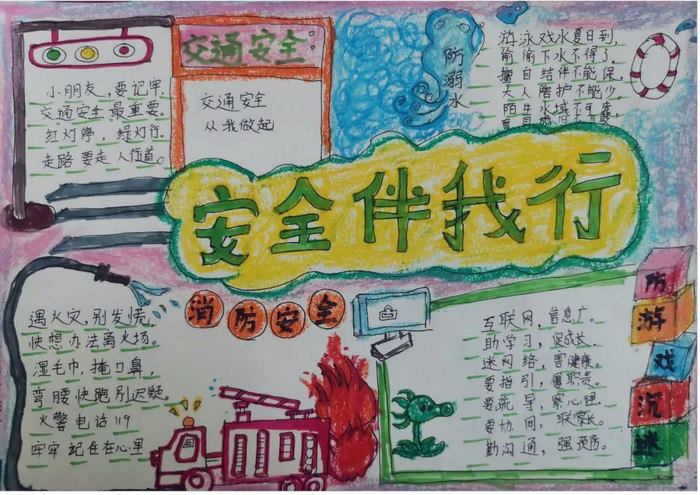 小朋友，要记牢，
交通安全最重要。
红灯停，绿灯行，
走路要走人行道。
交通安全
交通安全
从我做起
防溺水
游泳戏水夏日到，
偷偷下水不得了，
擅自结伴不能保，
大人陪护不能少，
陌生水域不可靠，
安全伴我行
消防安全
遇火灾，别发慌，
快想办法离火场。
湿毛巾，掩口鼻，
弯腰快跑别迟疑。
火警电话119
牢牢记在在心里
互联网，信息广。
助学习，促成长。
迷网络，害健康。
要指引，履职责。
要疏导，察心理。
要协同，联家长
勤沟通，强预防。
防游戏沉迷